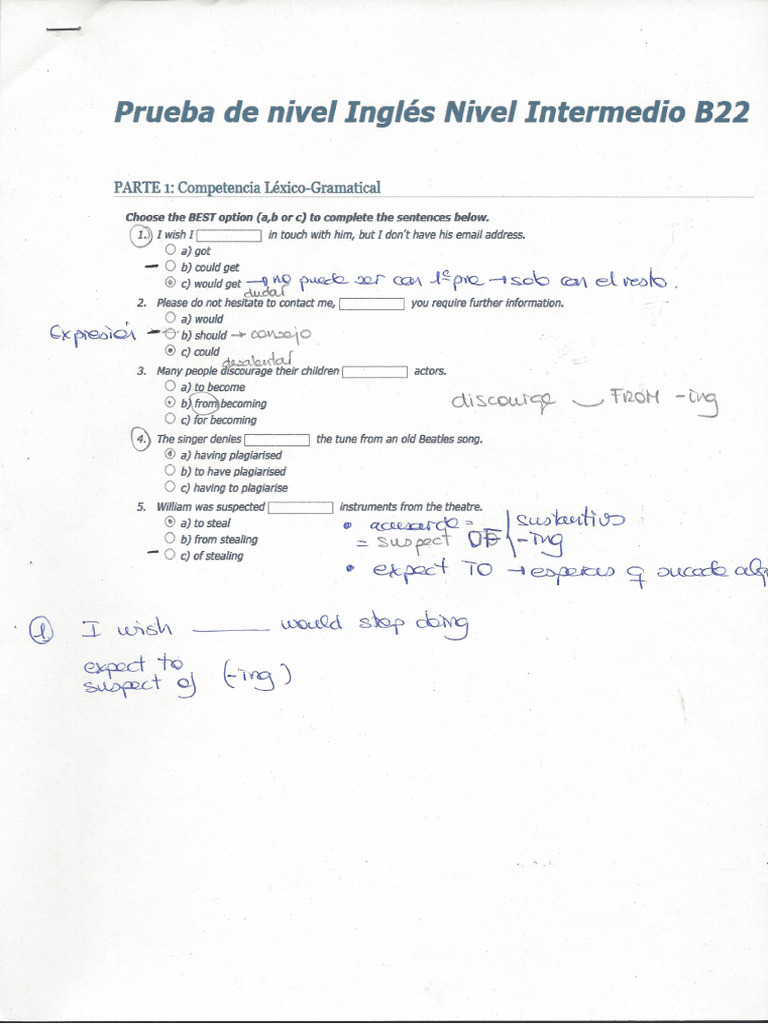 Prueba de nivel Inglés Nivel Intermedio B22
PARTE 1: Competencia Léxico-Gramatical
Choose the BEST option (a,b or c) to complete the sentences below.
1. I wish I in touch with him, but I don't have his email address.
a) got
b) could get
c) would get → no puede ser con 1ª pre → solo con el resto.
dudar
2. Please do not hesitate to contact me, you require further information.
a) would
Expresión b) should → consejo
c) could
desalentar
3. Many people discourage their children actors.
a) to become
b) from becoming discourige FROM -ing
c) for becoming
4. The singer denies the tune from an old Beatles song.
a) having plagiarised
b) to have plagiarised
c) having to plagiarise
5. William was suspected instruments from the theatre.
a) to steal • acusar de = sustantivo
b) from stealing = suspect OF -ing
c) of stealing
• expect TO → esperas q suceda alg
1 I wish ______ would stop doing
expect to
suspect of (-ing)